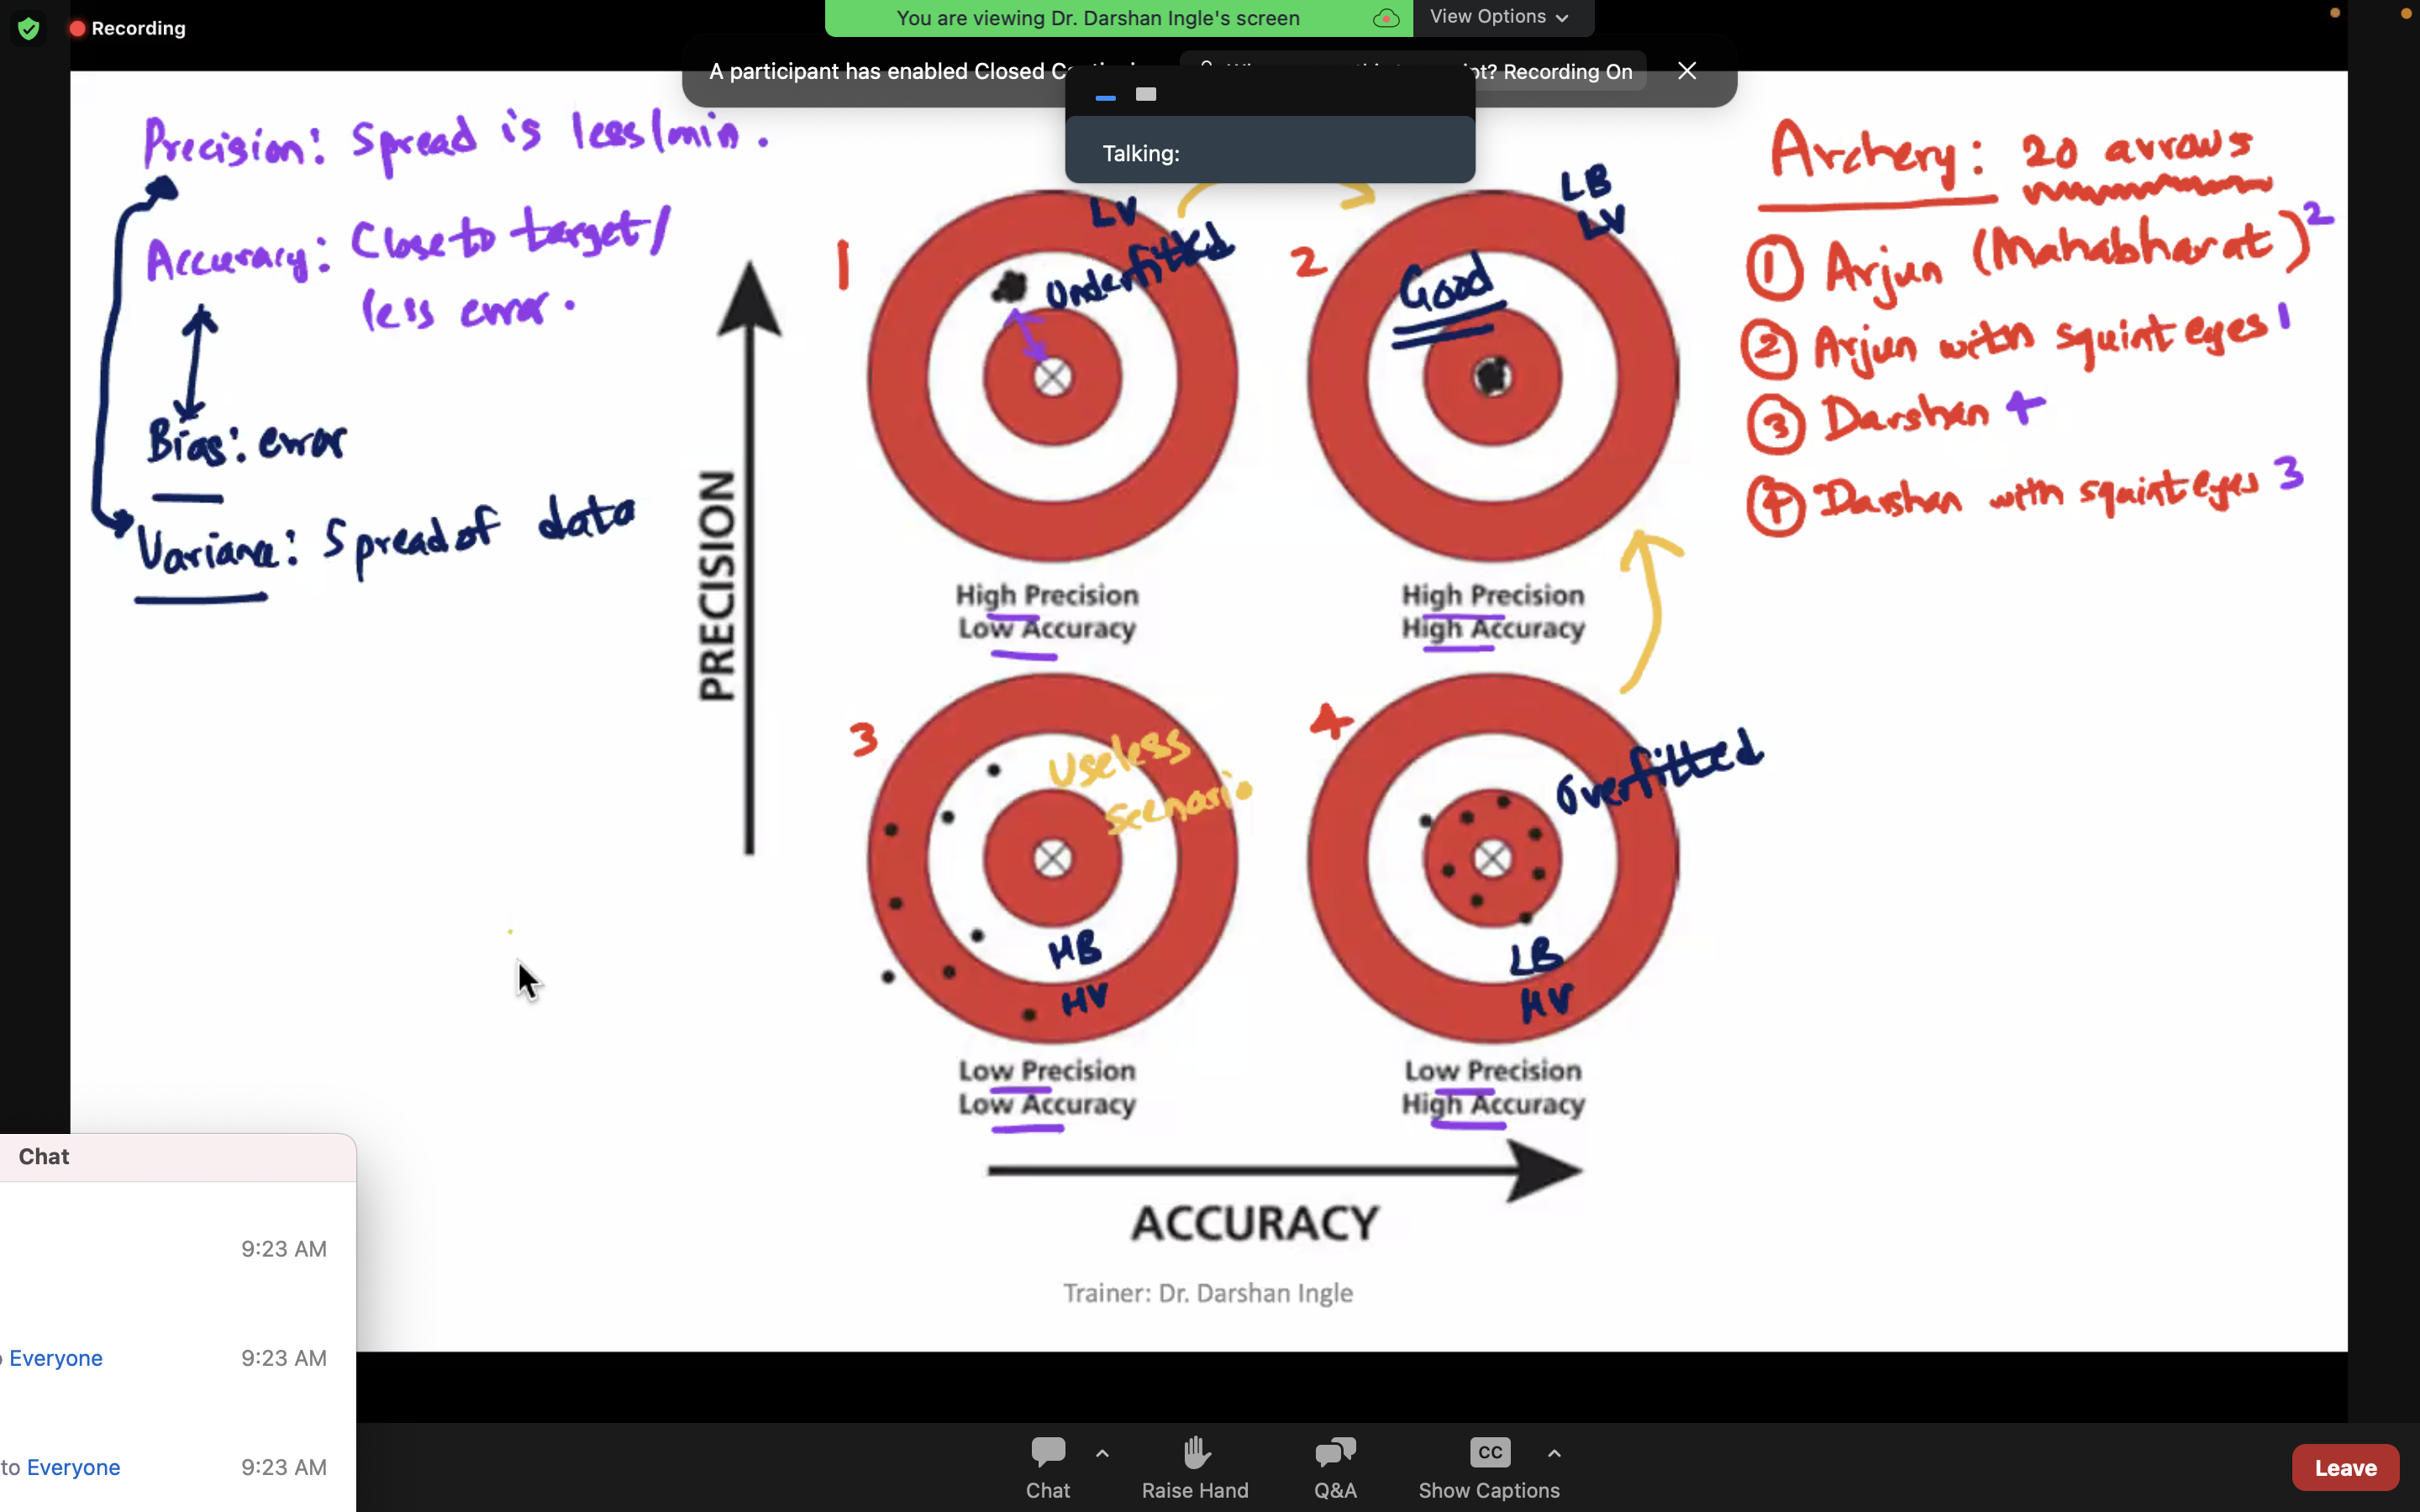 Recording
You are viewing Dr. Darshan Ingle's screen
View Options
A participant has enabled Closed
Recording On
Talking:
Precision: Spread is less/min.
Accuracy: Close to target/
less error.
Bias: error
Variance: Spread of data
PRECISION
1
LV
Underfitted
High Precision
Low Accuracy
2
LB
LV
Good
High Precision
High Accuracy
3
Useless
scenario
HB
HV
Low Precision
Low Accuracy
4
Overfitted
LB
HV
Low Precision
High Accuracy
ACCURACY
Trainer: Dr. Darshan Ingle
Archery: 20 arrows
① Arjun (Mahabharat) 2
② Arjun with squint eyes 1
③ Darshan 4
④ Darshan with squint eyes 3
Chat
9:23 AM
Everyone 9:23 AM
to Everyone 9:23 AM
Chat
Raise Hand
Q&A
CC
Show Captions
Leave